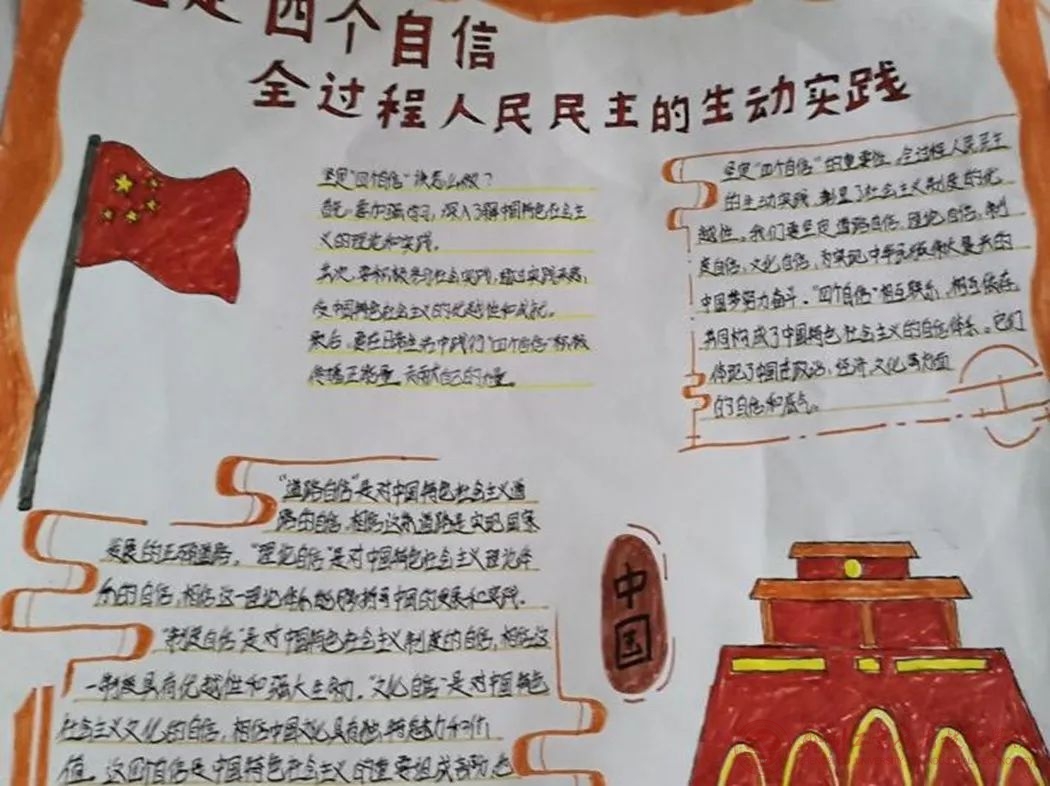 坚定四个自信
全过程人民民主的生动实践
坚定"四个自信"该怎么做？
首先，要加强学习，深入了解中国特色社会主
义的理论和实践。
其次，要积极参与社会实践，通过实践来感
受中国特色社会主义的优越性和成就。
最后，要在日常生活中践行"四个自信"积极
传播正能量，贡献自己的力量。
坚定"四个自信"的重要性，全过程人民民主
的生动实践，彰显了社会主义制度的优
越性。我们要坚定道路自信，理论自信，制
度自信，文化自信，为实现中华民族伟大复兴的
中国梦努力奋斗。"四个自信"相互联系，相互依存，
共同构成了中国特色社会主义的自信体系。它们
体现了中国在政治，经济，文化等方面
的自信和底气。
"道路自信"是对中国特色社会主义道
路的自信，相信这条道路是实现国家
发展的正确道路，"理论自信"是对中国特色社会主义理论体
系的自信，相信这一理论体系能够指导中国的发展和实践。
"制度自信"是对中国特色社会主义制度的自信，相信这
一制度具有优越性和强大生命力。"文化自信"是对中国特色
社会主义文化的自信，相信中国文化具有独特魅力和价
值。这四个自信是中国特色社会主义的重要组成部分也
中国